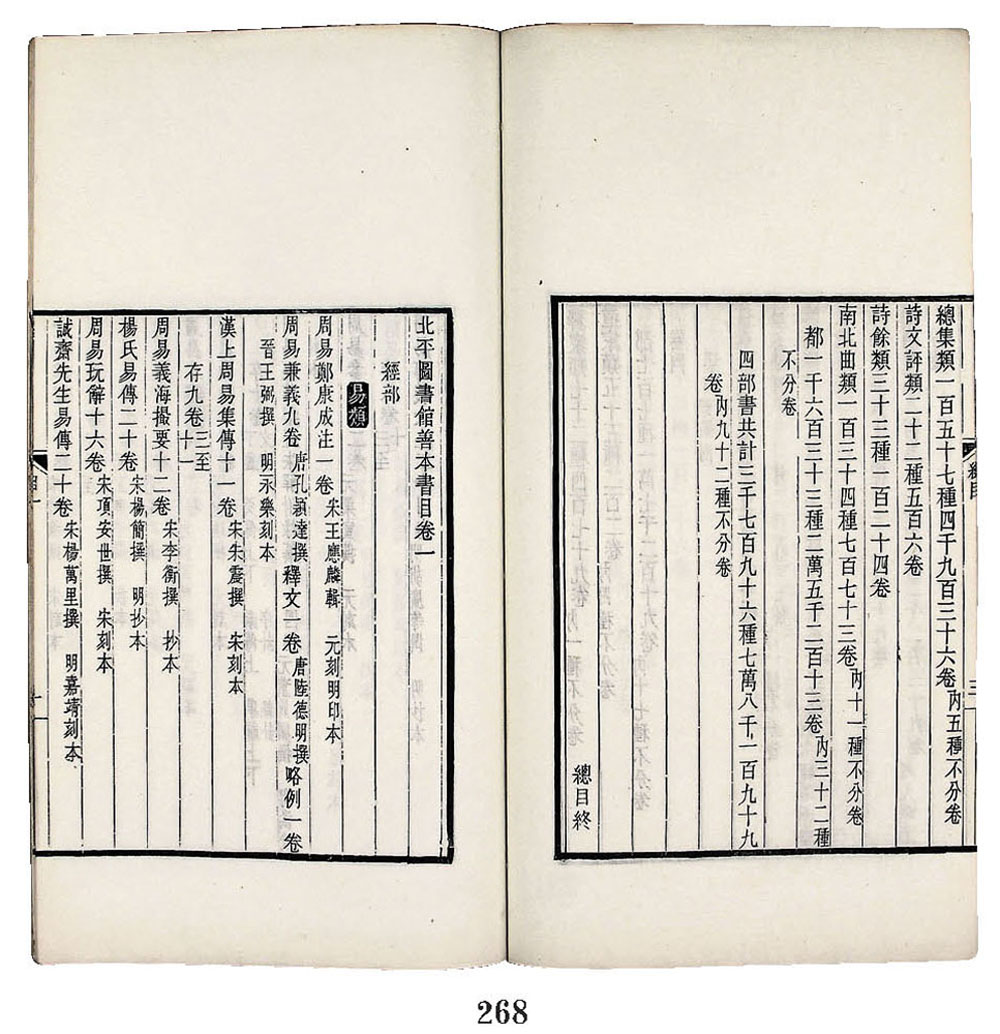 總集類一百五十七種四千九百三十六卷內五種不分卷
詩文評類二十二種五百六卷
詩餘類三十三種一百二十四卷
南北曲類一百三十四種七百七十三卷內十一種不分卷
都一千六百三十三種二萬五千二百十三卷內三十二種
不分卷
四部書共計三千七百九十六種七萬八千一百九十九
卷內九十二種不分卷
總目終
總目
三
北平圖書館善本書目卷一
經部
易類
周易鄭康成注一卷 宋王應麟輯 元刻明印本
周易兼義九卷 唐孔穎達撰 釋文一卷 唐陸德明撰 略例一卷
晉王弼撰 明永樂刻本
漢上周易集傳十一卷 宋朱震撰 宋刻本
存九卷 三至十一
周易義海撮要十二卷 宋李衡撰 抄本
楊氏易傳二十卷 宋楊簡撰 明抄本
周易玩辭十六卷 宋項安世撰 宋刻本
誠齋先生易傳二十卷 宋楊萬里撰 明嘉靖刻本
268